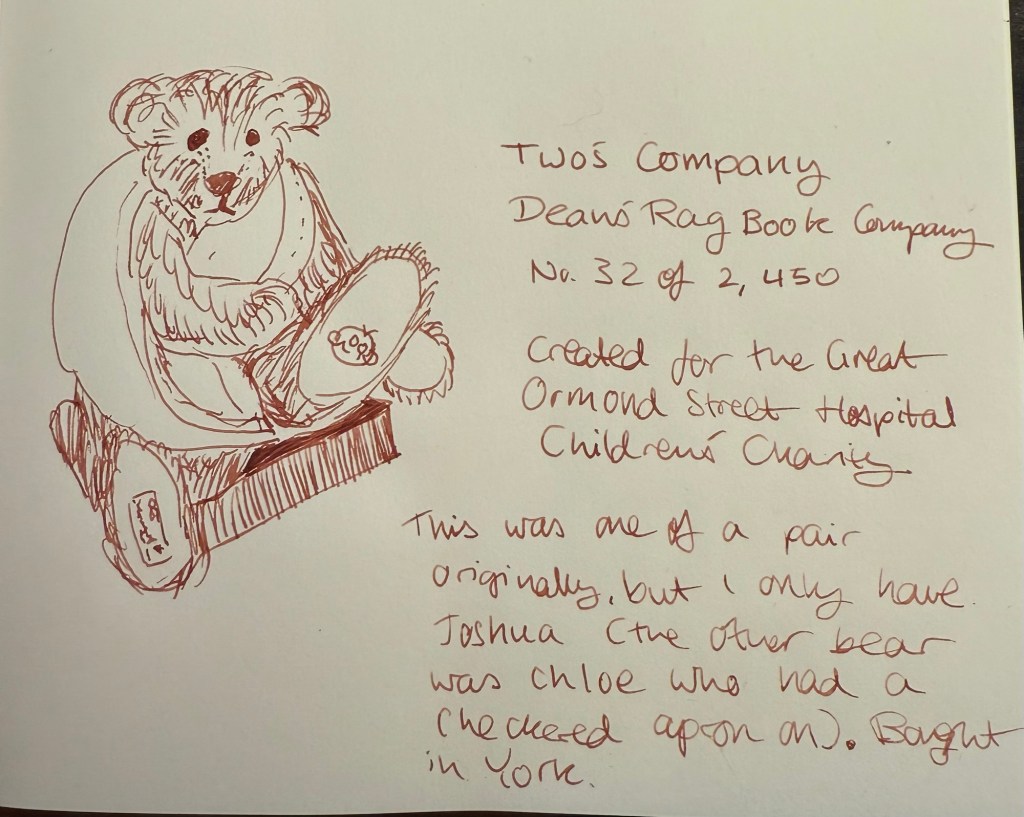 Two's Company
Dean's Rag Book Company
No. 32 of 2,450
Created for the Great
Ormond Street Hospital
Children's Charity
This was one of a pair
originally, but I only have
Joshua (the other bear
was Chloe who had a
checkered apron on). Bought
in York.